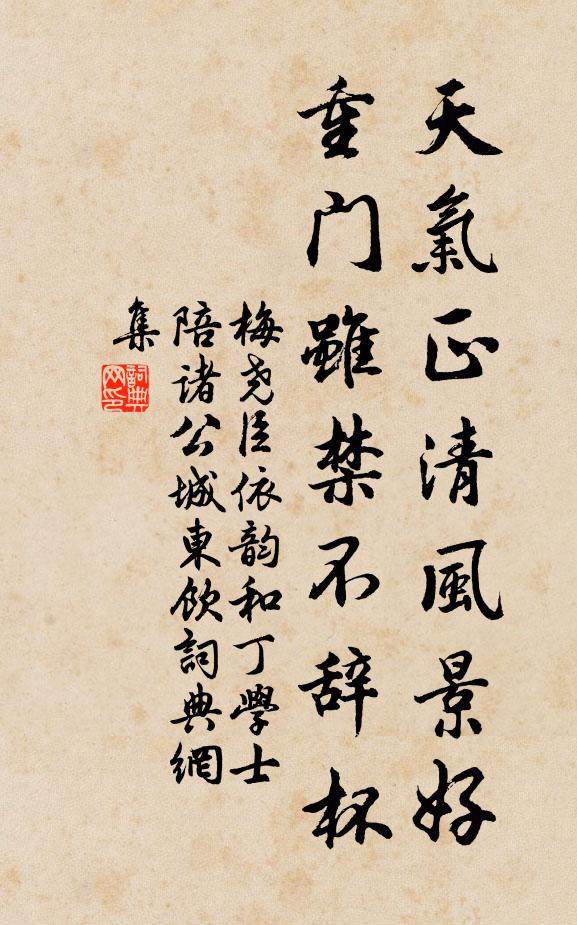 天氣正清風景好
重門雖禁不辞杯
梅尧臣依韵和丁學士
陪诸公城東飲詞典網
集
詞典
网印